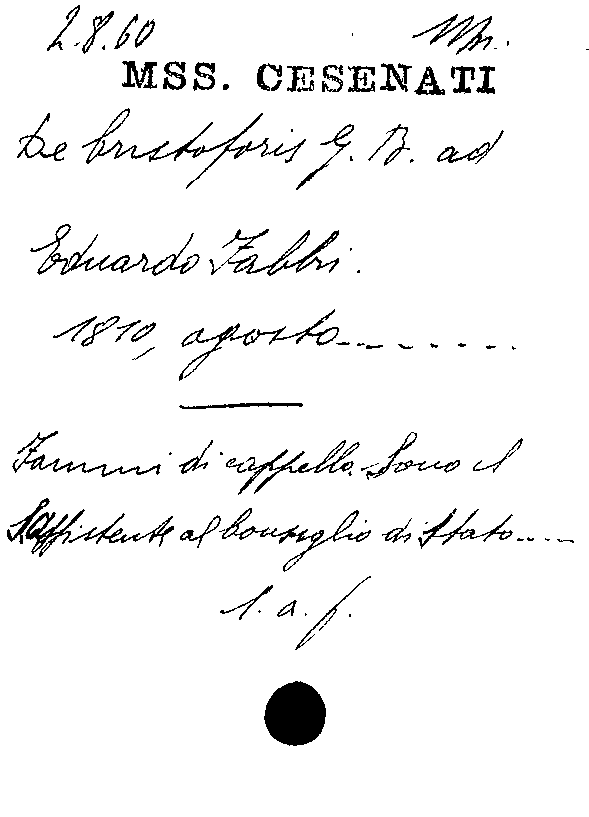 2.8.60
MSS. CESENATI
De Cristoforis G. B. ad
Eduardo Fabbri.
1810, agosto........
Fammi di cappello. Sono il
l'Assistente al Consiglio di Stato.....
1. a. f.